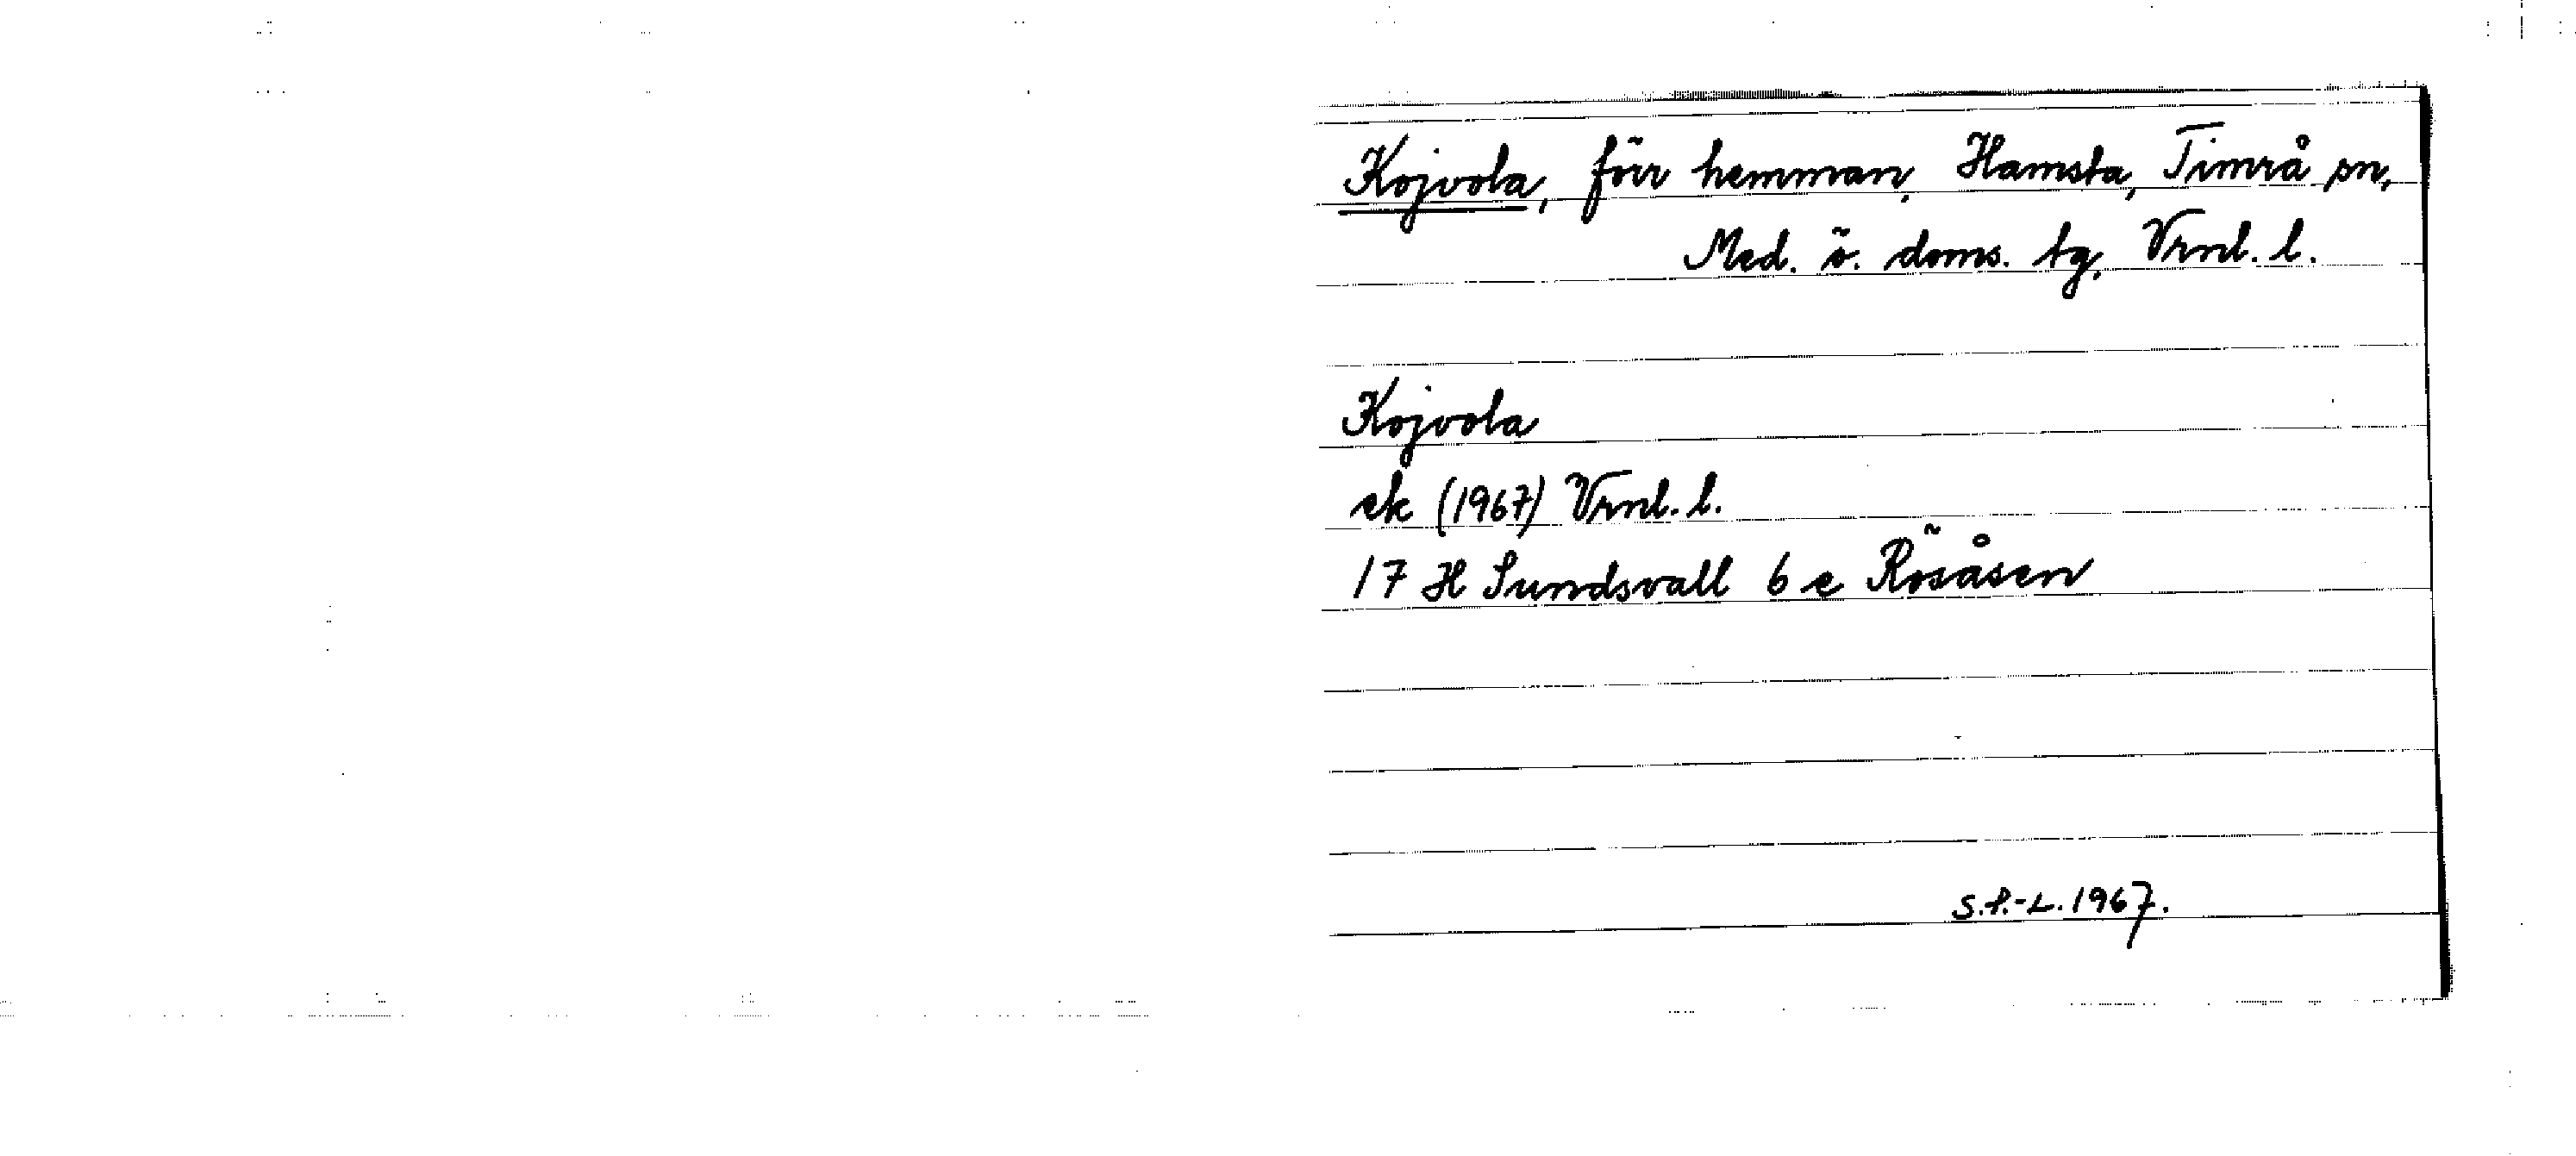 Kojvola, förr hemman, Hamsta, Timrå sn,
Med. ö. doms. tg, Vrnl. l.
Kojvola
ek (1967) Vrnl. l.
17 H Sundsvall 6 e Rösåsen
S.P.-L. 1967.